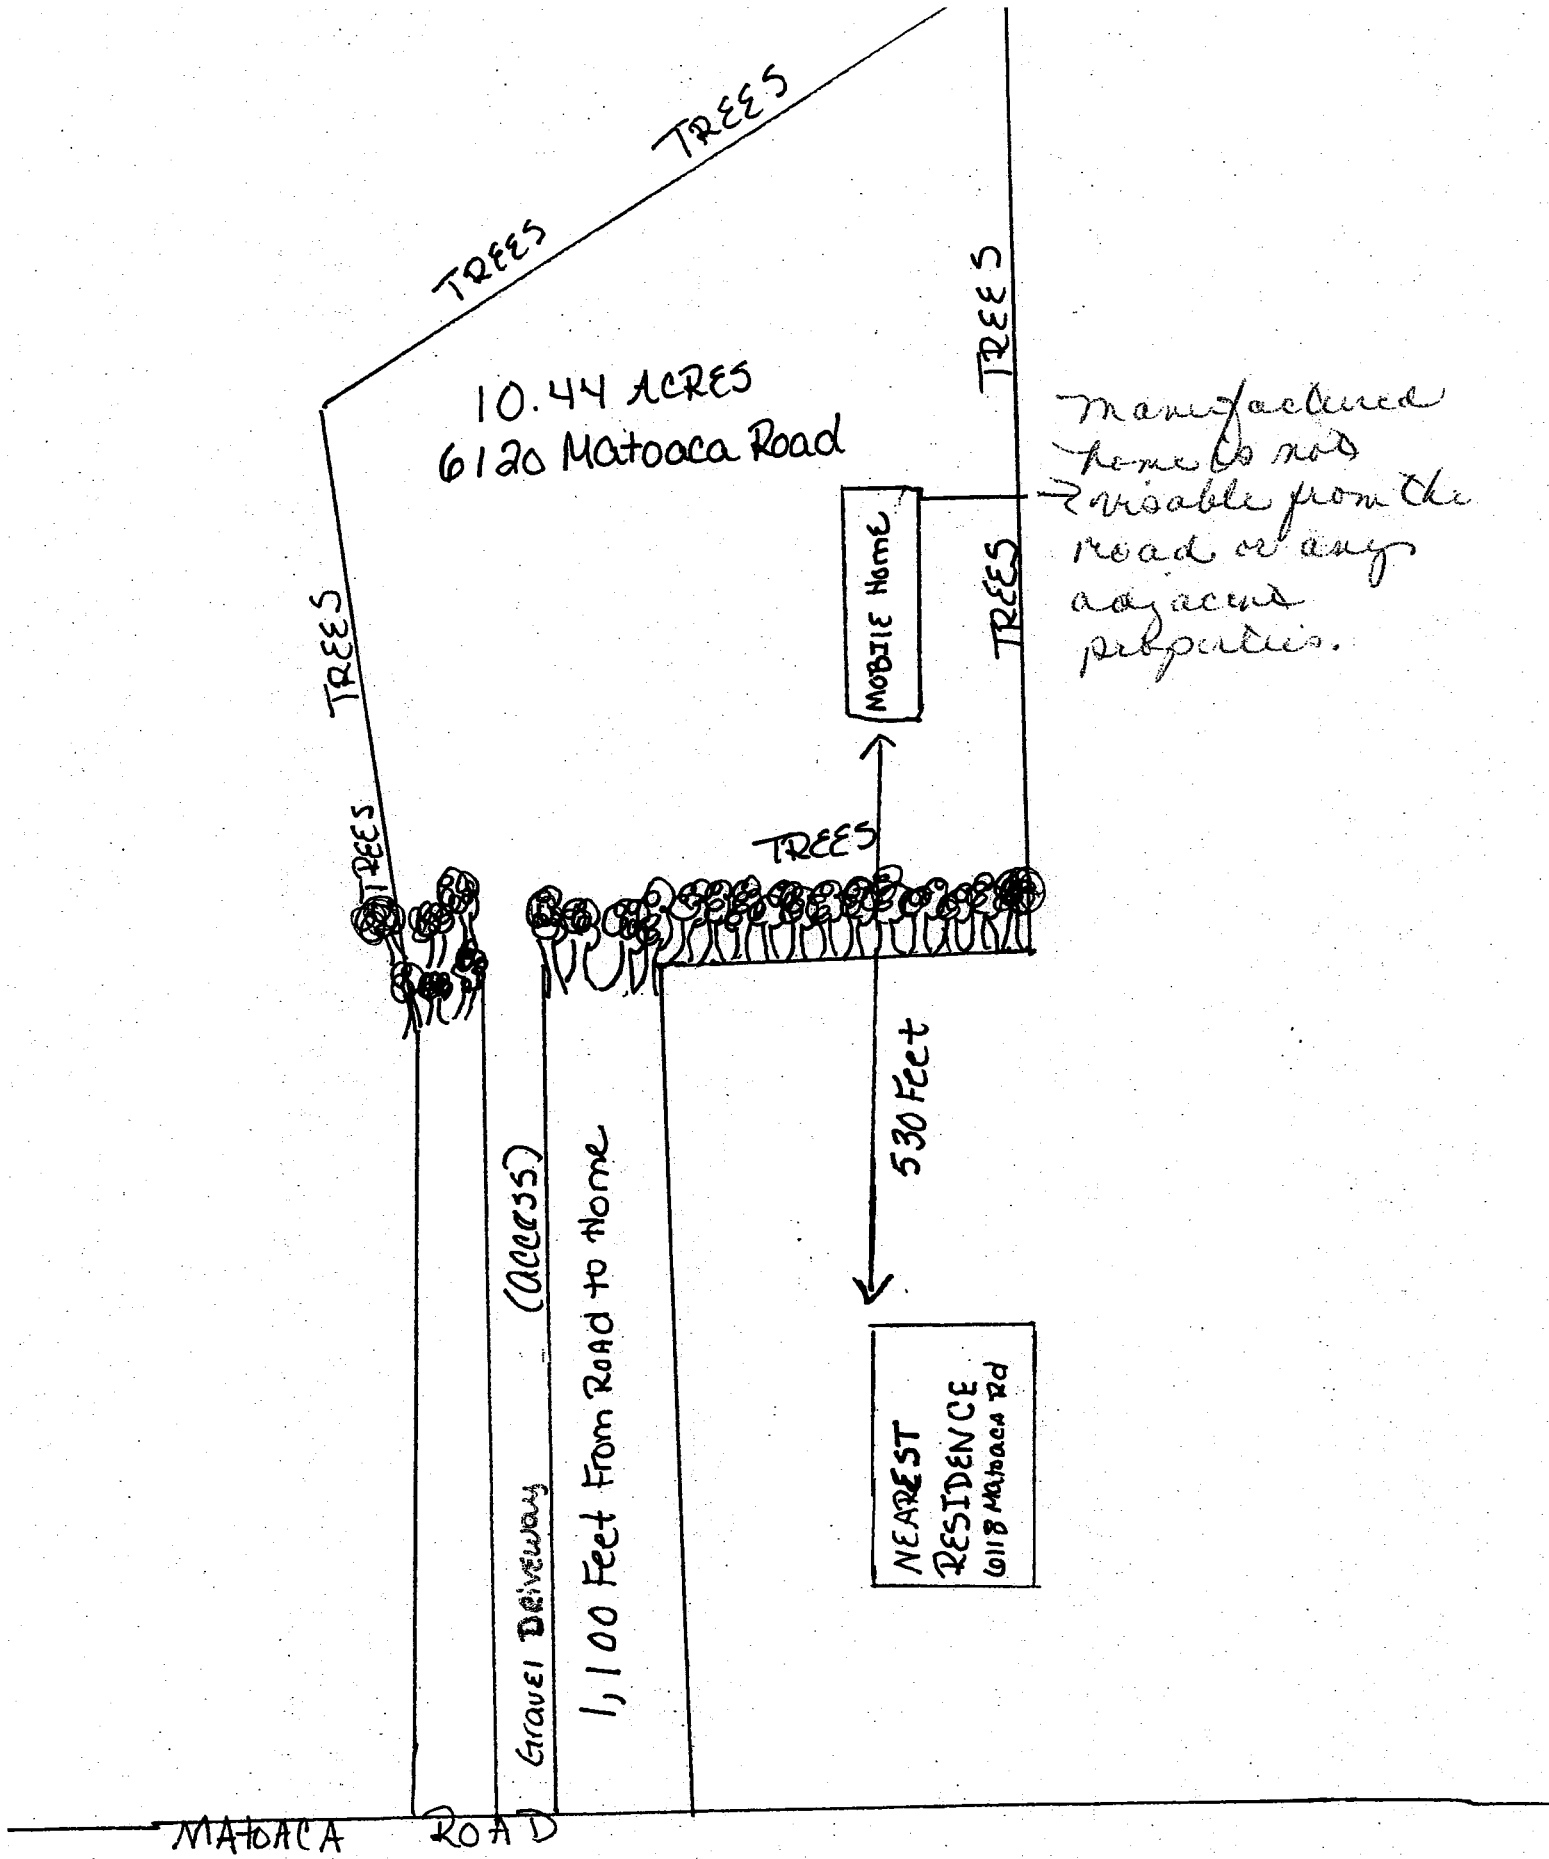 TREES
TREES
TREES
10.44 ACRES
6120 Matoaca Road
Manufactured
home is not
visable from the
road or any
adjacent
properties.
MOBILE Home
TREES
TREES
TREES
TREES
530 Feet
(access)
Gravel Driveway
1,100 Feet From Road to Home
NEAREST
RESIDENCE
6118 Matoaca Rd
MATOACA ROAD